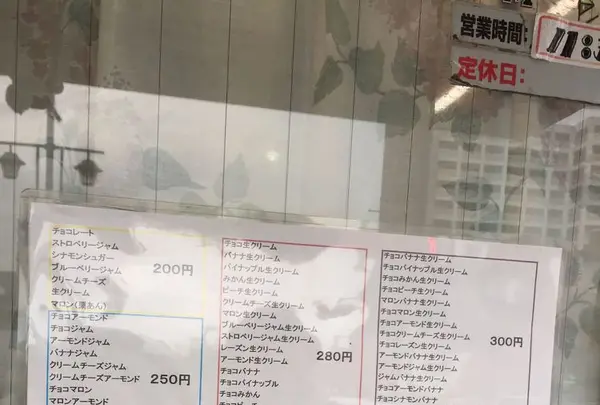 営業時間:
定休日:
チョコレート
ストロベリージャム
シナモンシュガー
ブルーベリージャム
クリームチーズ
生クリーム
マロン(栗あん)
200円
チョコアーモンド
チョコジャム
アーモンドジャム
バナナジャム
クリームチーズジャム
クリームチーズアーモンド
チョコマロン
マロンアーモンド
250円
チョコ生クリーム
バナナ生クリーム
パイナップル生クリーム
みかん生クリーム
ピーチ生クリーム
クリームチーズ生クリーム
マロン生クリーム
ブルーベリージャム生クリーム
ストロベリージャム生クリーム
レーズン生クリーム
アーモンド生クリーム
チョコバナナ
チョコパイナップル
チョコみかん
チョコピーチ
280円
チョコバナナ生クリーム
チョコパイナップル生クリーム
チョコみかん生クリーム
チョコピーチ生クリーム
マロンバナナ生クリーム
チョコマロン生クリーム
チョコアーモンド生クリーム
チョコクリームチーズ生クリーム
チョコレーズン生クリーム
アーモンドバナナ生クリーム
ジャムバナナ生クリーム
チョコアーモンドバナナ
チョコシナモンバナナ
300円